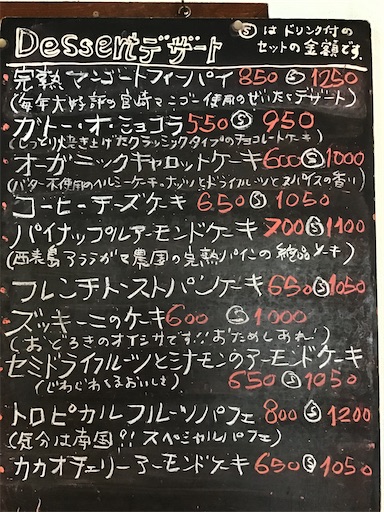 Dessertデザート
Ⓢはドリンク付の
セットの金額です。
完熟マンゴートフィーパイ 850 Ⓢ 1250
(毎年大好評の宮崎マンゴー使用のぜいたくデザート)
ガトー・オ・ショコラ 550 Ⓢ 950
(しっとり焼き上げたクラッシックタイプのチョコレートケーキ)
オーガニックキャロットケーキ 600 Ⓢ 1000
(バター不使用のヘルシーケーキ。ナッツとドライフルーツとスパイスの香り)
コーヒーチーズケーキ 650 Ⓢ 1050
パイナップルアーモンドケーキ 700 Ⓢ 1100
(西表島アララガマ農園の完熟パインの絶品ケーキ)
フレンチトーストパンケーキ 650 Ⓢ 1050
ズッキーニのケーキ 600 Ⓢ 1000
(おどろきのオイシサです!!おためしあれ!)
セミドライフルーツとシナモンのアーモンドケーキ
(じわじわくるおいしさ) 650 Ⓢ 1050
トロピカルフルーツパフェ 800 Ⓢ 1200
(気分は南国?!スペシャルパフェ)
カカオチェリーアーモンドケーキ 650 Ⓢ 1050